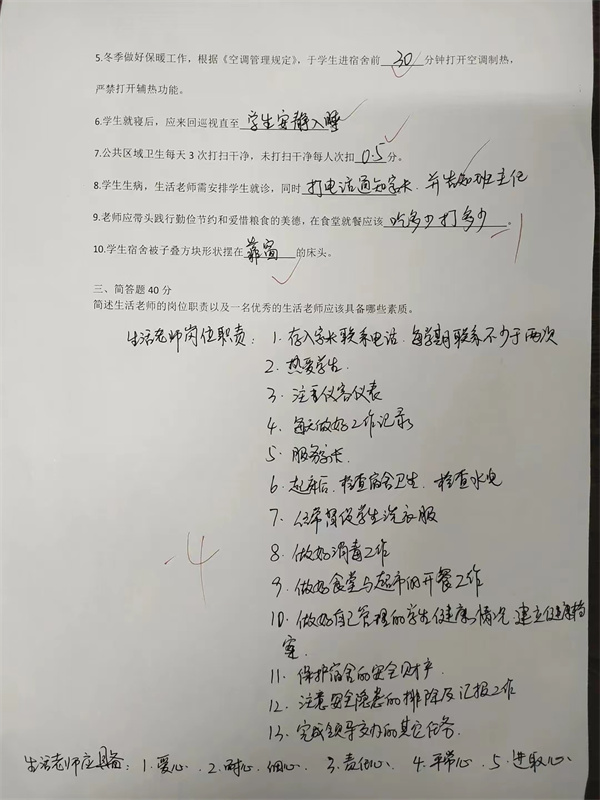 5.冬季做好保暖工作，根据《空调管理规定》，于学生进宿舍前 30 分钟打开空调制热，
严禁打开辅热功能。
6.学生就寝后，应来回巡视直至 学生安静入睡
7.公共区域卫生每天3次打扫干净，未打扫干净每人次扣 0.5 分。
8.学生生病，生活老师需安排学生就诊，同时 打电话通知家长.并告知班主任
9.老师应带头践行勤俭节约和爱惜粮食的美德，在食堂就餐应该 吃多少打多少 。
-1
10.学生宿舍被子叠方块形状摆在 靠窗 的床头。
三、简答题 40 分
简述生活老师的岗位职责以及一名优秀的生活老师应该具备哪些素质。
生活老师岗位职责：1.存入家长联系电话.每学期联系不少于两次
2.热爱学生.
3.注重仪容仪表
4.每天做好工作记录
5.服务家长.
6.起床后.检查宿舍卫生.检查水电
7.督促学生洗衣服
-4
8.做好消毒工作
9.做好食堂与超市的开餐工作
10.做好自己管理的学生健康情况.建立健康档
案.
11.保护宿舍的安全财产.
12.注意安全隐患的排除及汇报工作
13.完成领导交办的其它任务.
生活老师应具备：1.爱心.2.耐心.细心.3.责任心.4.平常心.5.进取心.